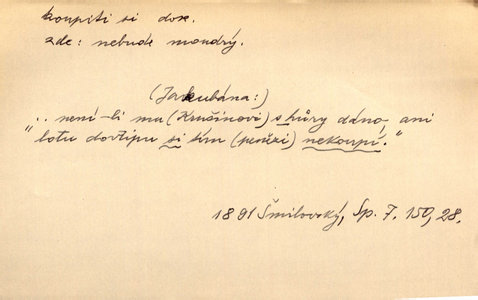 koupiti si dost.
zde: nebude moudrý.
(Jakubána:)
".. není-li mu (Krušinovi) s hůry dáno, ani
lotu dovtipu si tím (penězi) nekoupí."
1891 Šmilovský, Sp. 7. 150, 28.